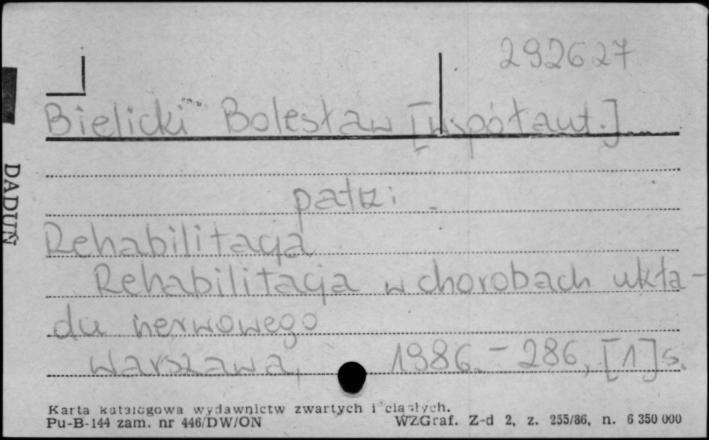 292627
Bielicki Bolesław [współaut.]
patrz:
Rehabilitacja
Rehabilitacja w chorobach ukła-
du nerwowego
Warszawa, 1986. - 286, [1] s.
DADUŃ
Karta katalogowa wydawnictw zwartych i ciągłych.
Pu-B-144 zam. nr 446/DW/ON WZGraf. Z-d 2, z. 255/86, n. 6 350 000